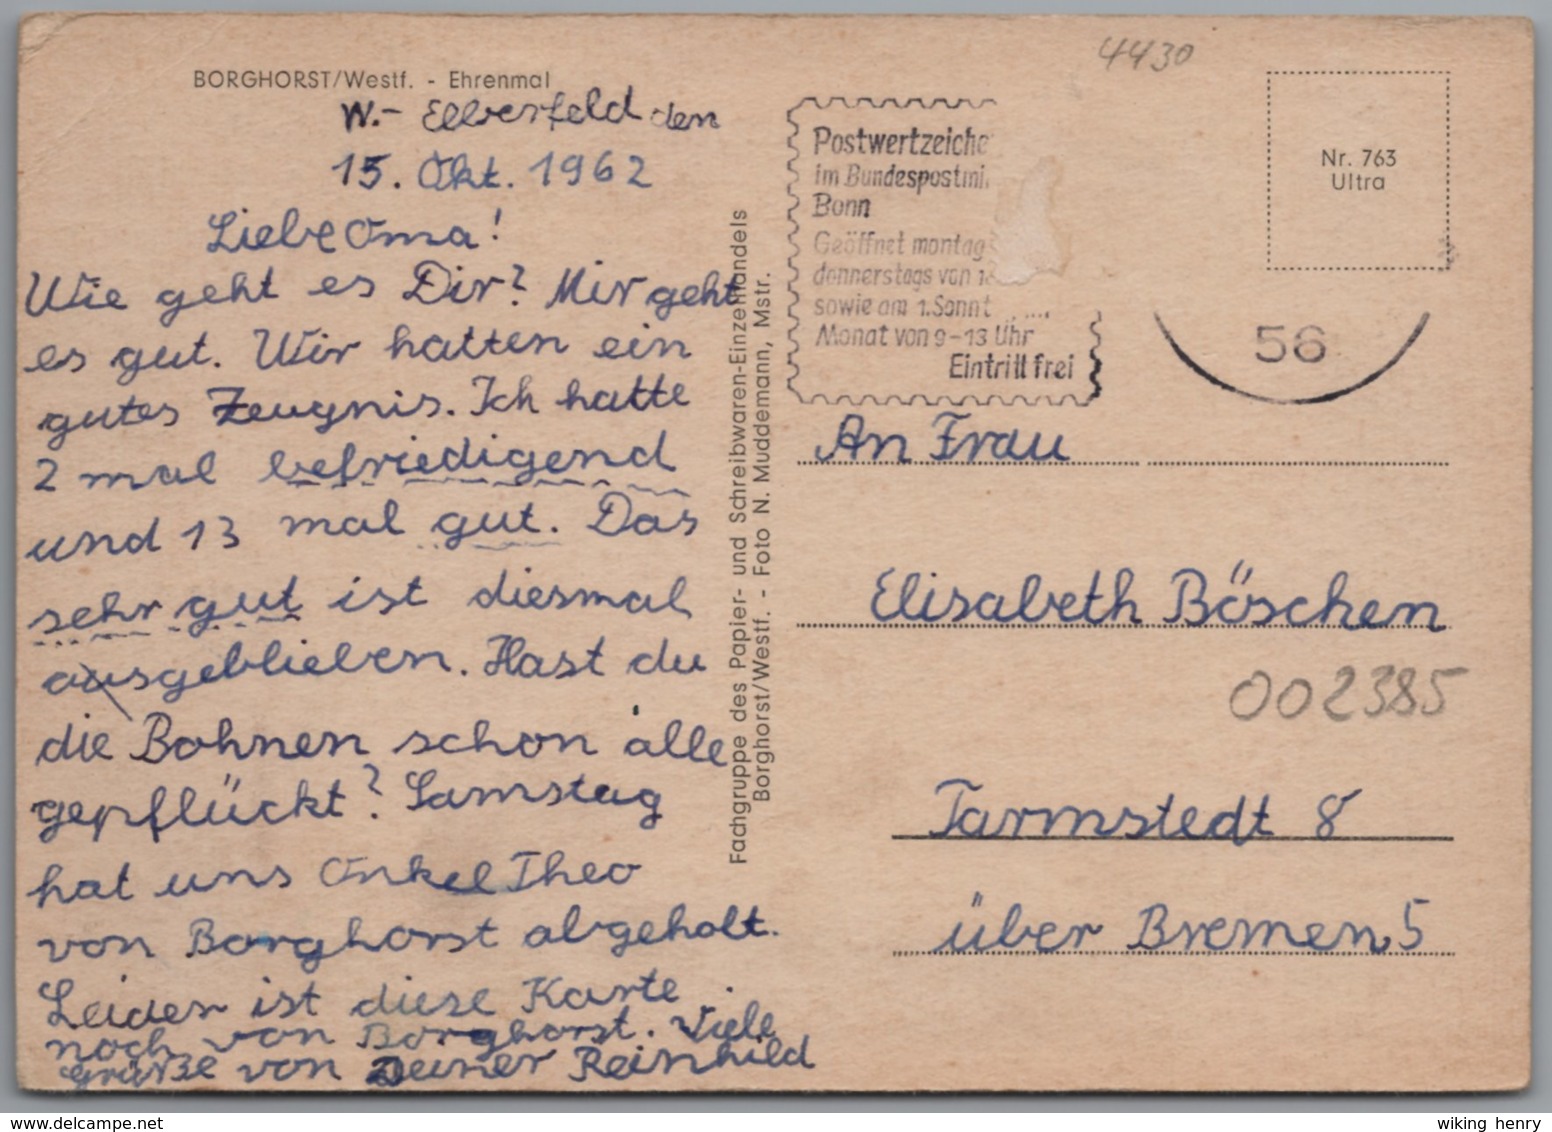 BORGHORST/Westf. - Ehrenmal
W.- Elberfeld den
15. Okt. 1962
Liebe Oma!
Wie geht es Dir? Mir geht
es gut. Wir hatten ein
gutes Zeugnis. Ich hatte
2 mal befriedigend
und 13 mal gut. Das
sehr gut ist diesmal
ausgeblieben. Hast du
die Bohnen schon alle
gepflückt? Samstag
hat uns Onkel Theo
von Borghorst abgeholt.
Leider ist diese Karte
noch von Borghorst. Viele
Grüße von Deiner Reinhild
Fachgruppe des Papier- und Schreibwaren-Einzelhandels
Borghorst/Westf. - Foto N. Muddemann, Mstr.
4430
Postwertzeiche
im Bundespostmi
Bonn
Geöffnet montag
donnerstags von
sowie am 1. Sonnt
Monat von 9-13 Uhr
Eintritt frei
Nr. 763
Ultra
56
An Frau
Elisabeth Böschen
002385
Tarmstedt 8
über Bremen 5
wiking henry